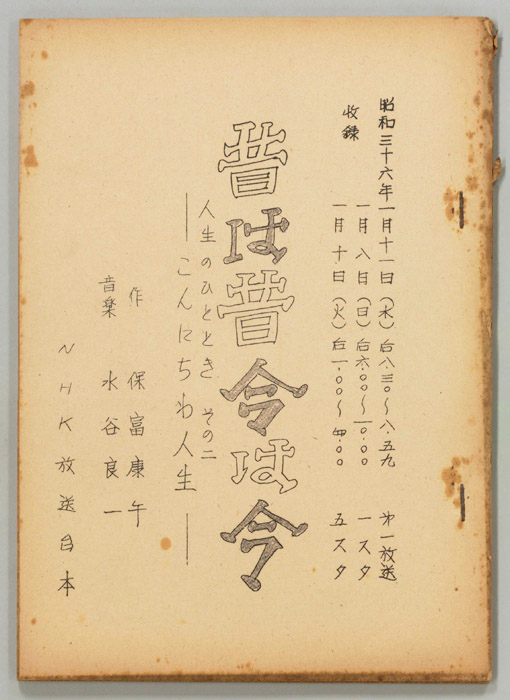 昭和三十六年一月十一日（水）后八.三〇〜八.五九　第一放送
収録　一月八日（日）后六.〇〇〜一〇.〇〇　一スタ
一月十日（火）后一.〇〇〜四.〇〇　五スタ
昔は昔今は今
人生のひととき　その二
――こんにちわ人生――
作　保富康午
音楽　水谷良一
NHK放送台本